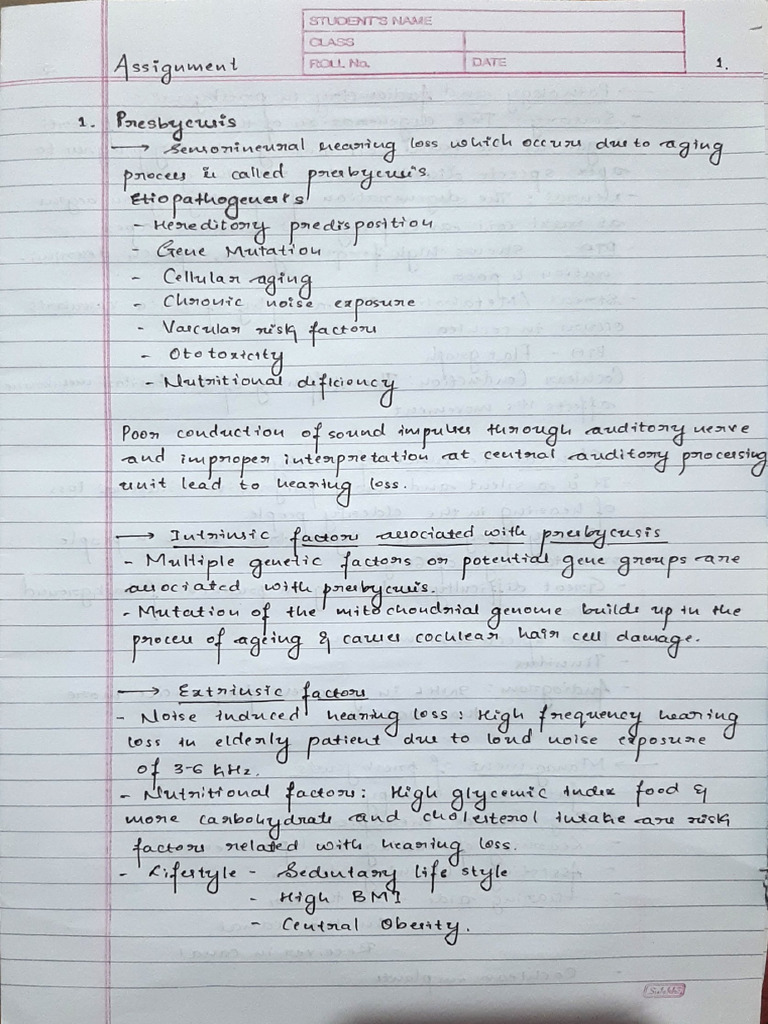 STUDENT'S NAME
CLASS
ROLL No. DATE
Assignment 1.
1. Presbycusis
→ Sensorineural hearing loss which occurs due to aging
process is called presbycusis.
Etiopathogenesis
- Hereditory predisposition
- Gene Mutation
- Cellular aging
- Chronic noise exposure
- Vascular risk factors
- Ototoxicity
- Nutritional deficiency
Poor conduction of sound impulses through auditory nerve
and improper interpretation at central auditory processing
unit lead to hearing loss.
→ Intrinsic factors associated with presbycusis
- Multiple genetic factors or potential gene groups are
associated with presbycusis.
- Mutation of the mitochondrial genome builds up in the
process of ageing & causes cochlear hair cell damage.
→ Extrinsic factors
- Noise induced hearing loss : High frequency hearing
loss in elderly patient due to loud noise exposure
of 3-6 kHz.
- Nutritional factors : High glycemic index food &
more carbohydrate and cholesterol intake are risk
factors related with hearing loss.
- Lifestyle - Sedentary life style
- High BMI
- Central Obesity.